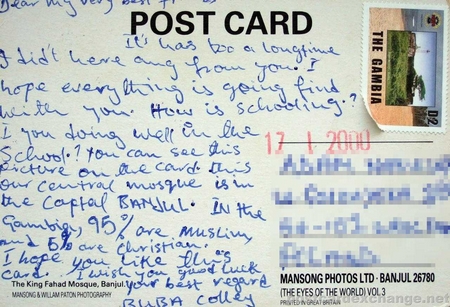 Dear my very best
POST CARD
It's has boo a longtime
I did't here any from you. I
hope everything is going find
with you. How is schooling?
I you doing well in the
School? You can see this
picture on the card. this
our central mosque is in
the Capital BANJUL. IN the
Gambia, 95% are muslim,
and 5% are christian.
I hope you like this
card. I wish you good luck
your best regard
BUBA Colley
The King Fahad Mosque, Banjul.
MANSONG & WILLAM PATON PHOTOGRAPHY
THE GAMBIA
D2
17 1 2000
MANSONG PHOTOS LTD · BANJUL 26780
(THE EYES OF THE WORLD) VOL 3
PRINTED IN GREAT BRITAIN